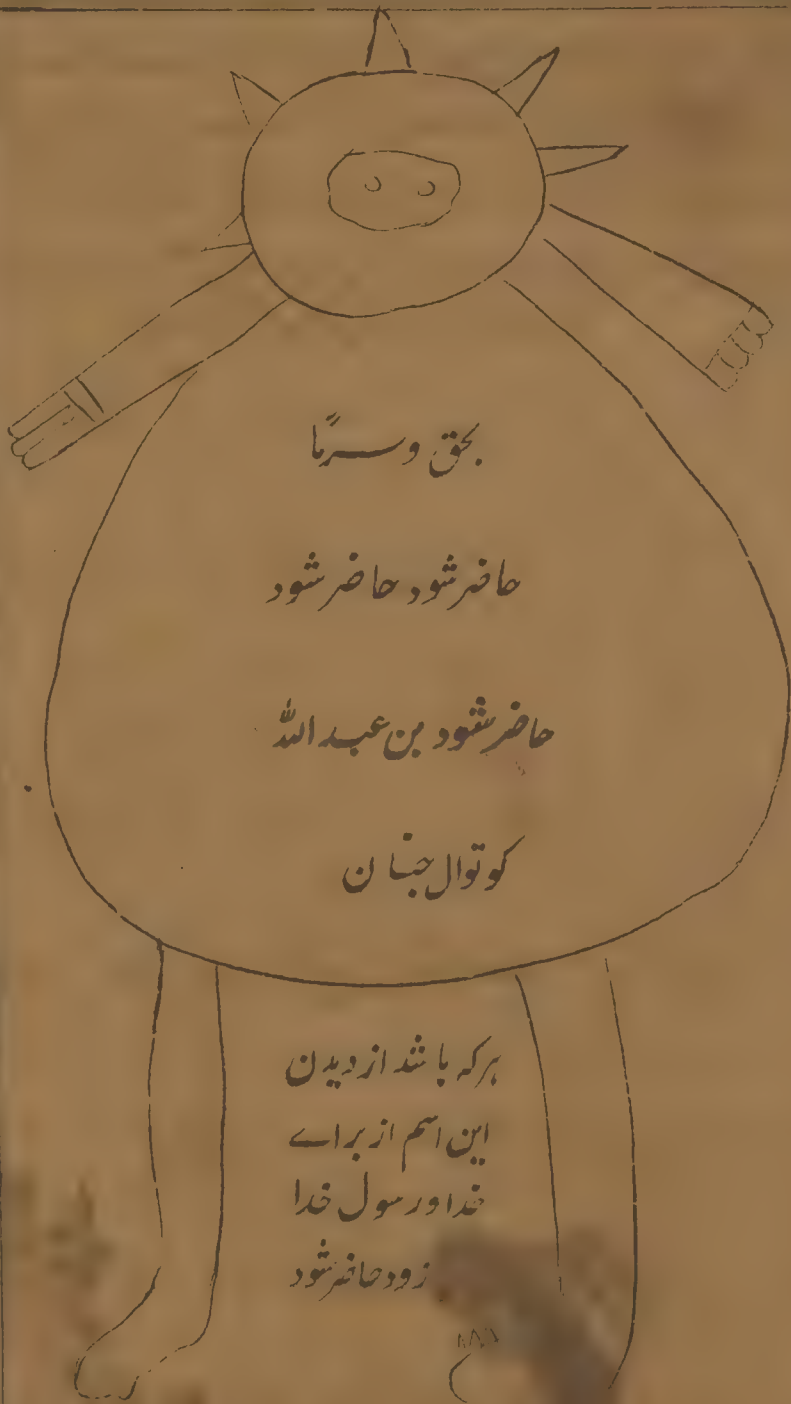 بحق وسرمًا
حاضر شود حاضر شود
حاضر شود بن عبد الله
کوتوال جنان
ہرکہ باشد از دیدن
این اسم از براے
خدا و رسول خدا
زود حاضر شود